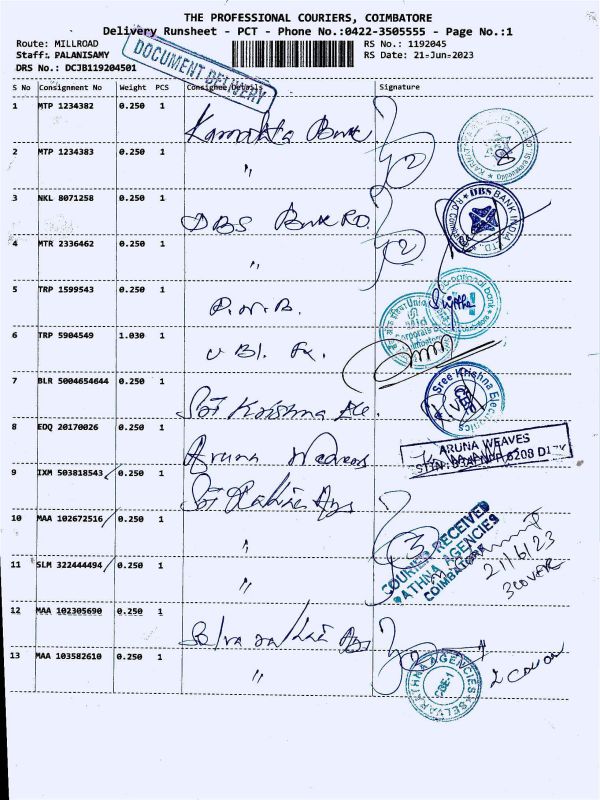 THE PROFESSIONAL COURIERS, COIMBATORE
Delivery Runsheet - PCT - Phone No.:0422-3505555 - Page No.:1
Route: MILLROAD
RS No.: 1192045
Staff: PALANISAMY
RS Date: 21-Jun-2023
DRS No.: DCJB119204501
DOCUMENT DELIVERY
S No Consignment No Weight PCS Consignee Details Signature
1 MTP 1234382 0.250 1 Karnataka Bank
2 MTP 1234383 0.250 1 "
2
3 NKL 8071258 0.250 1 DBS Bank RO.
DBS BANK INDIA LTD.,
4 MTR 2336462 0.250 1 "
2
5 TRP 1599543 0.250 1 P.N.B.
6 TRP 5904549 1.030 1 UBI.
7 BLR 5004654644 0.250 1 Sri Krishna Ele.
Sree Krishna Electronics
8 EOQ 20170026 0.250 1 Aruna Weaves
ARUNA WEAVES
9 IXM 503818543 0.250 1
10 MAA 102672516 0.250 1 "
3
COURIER RECEIVED
RATHNA AGENCIES
COIMBATORE
21/6/23
3 COVER
11 SLM 322444494 0.250 1 "
12 MAA 102305690 0.250 1
13 MAA 103582610 0.250 1 "
2
SELVARATHNA AGENCIES
CBE-1
2 Cover